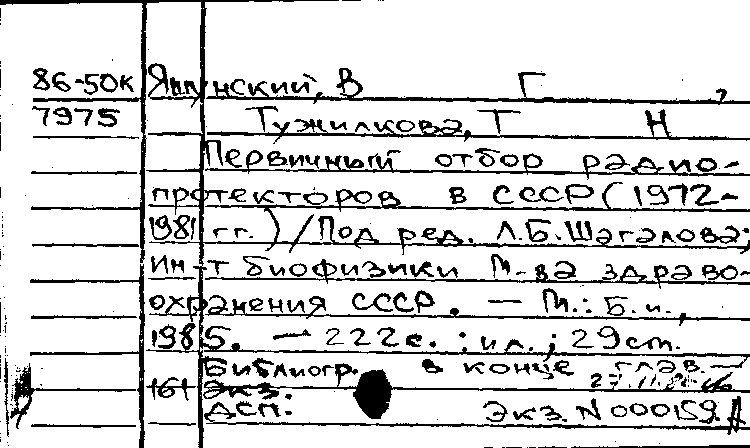 86-50к Яшунский, В Г ,
7975 Тужилкова, Т Н
Первичный отбор радио-
протекторов в СССР (1972-
1981 гг.)/Под ред. Л.Б.Шагалова;
Ин-т биофизики М-ва здраво-
охранения СССР. — М.: Б.и.,
1985. — 222с. : ил.; 29см.
Библиогр. в конце глав. —
161 экз.
ДСП. Экз. N 000159.